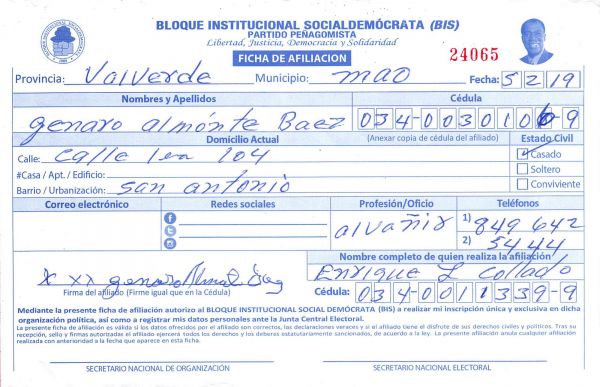 BLOQUE INSTITUCIONAL SOCIALDEMÓCRATA (BIS)
PARTIDO PEÑAGOMISTA
Libertad, Justicia, Democracia y Solidaridad
FICHA DE AFILIACION
24065
Provincia: Valverde Municipio: mao Fecha: 5 2 19
Nombres y Apellidos Cédula
genaro almónte Baez 034-0030106-9
Domicilio Actual (Anexar copia de cédula del afiliado) Estado Civil
Calle: calle 1ra 104 Casado
#Casa / Apt. / Edificio: Soltero
Barrio / Urbanización: san antonio Conviviente
Correo electrónico Redes sociales Profesión/Oficio Teléfonos
alvañir 1) 849 642
2) 5444
Nombre completo de quien realiza la afiliación
Enrique L Collado
Firma del afiliado (Firme igual que en la Cédula) Cédula: 034-0011339-9
Mediante la presente ficha de afiliación autorizo al BLOQUE INSTITUCIONAL SOCIAL DEMÓCRATA (BIS) a realizar mi inscripción única y exclusiva en dicha
organización política, así como a registrar mis datos personales ante la Junta Central Electoral.
La presente ficha de afiliación es válida si los datos ofrecidos por el afiliado son correctos, las declaraciones veraces y si el afiliado tiene el disfrute de sus derechos civiles y políticos. Tras su
recepción, sello y firmas autorizadas el afiliado ejercerá todos los derechos y los deberes estatutariamente sancionados, de acuerdo a la ley. La presente afiliación anula cualquier afiliación
realizada con anterioridad a la fecha que aparece en esta ficha.
SECRETARIO NACIONAL DE ORGANIZACIÓN SECRETARIO NACIONAL ELECTORAL